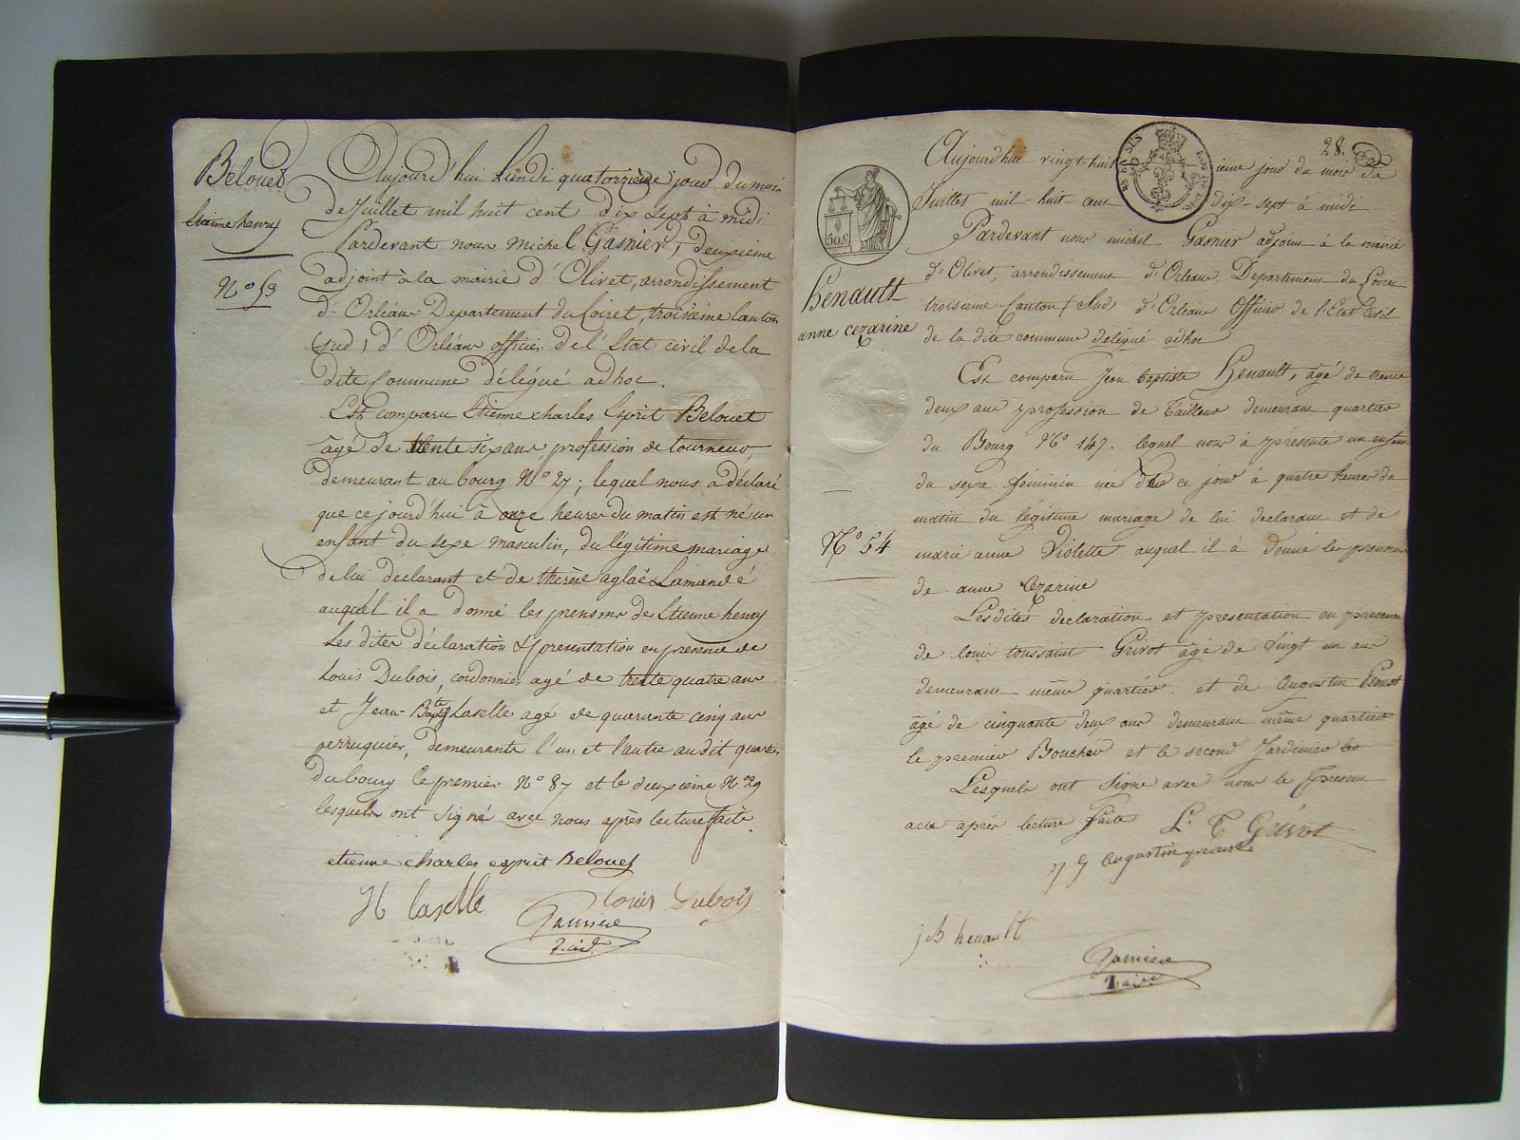 Belouet
Etienne henry
N° 53
Aujourd'hui Lundi quatorzieme jour du mois
de Juillet mil huit cent dix sept à midi
Pardevant nous michel Gasnier, deuxieme
adjoint à la mairie d'Olivet, arrondissement
d'Orléans Departement du Loiret, troisième Canton
(sud) d'Orléans officier de l'Etat civil de la
dite Commune délégué adhoc.
Est comparu Etienne charles Esprit Belouet
âgé de trente six ans profession de tourneur,
demeurant au bourg N° 27; lequel nous a déclaré
que cejourd'hui à onze heures du matin est né un
enfant du sexe masculin, du légitime mariage
de lui declarant et de therèse aglaé Lamandé
auquel il a donné les prenoms de Etienne henry
Les dites déclaration & presentation en presence de
Louis Dubois, cordonnier agé de trente quatre ans
et Jean Bte Laselle agé de quarante cinq ans
perruquier, demeurants l'un et l'autre audit quartier
du bourg le premier N° 87 et le deuxieme N° 29
lesquels ont signé avec nous après lecture faite
etienne charles esprit Belouet
Laselle
Louis Dubois
28.
508
henault
anne cezarine
N° 54
Aujourd'hui vingt-huitieme jour du mois de
Juillet mil-huit cent dix-sept à midi
Pardevant nous michel Gasnier adjoint à la mairie
d'Olivet, arrondissement d'Orleans Departement du Loiret
troisieme Canton (Sud) d'Orleans Officier de l'Etat Civil
de la dite commune délégué adhoc
Est comparu Jean baptiste henault, agé de trente
deux ans profession de tailleur demeurant quartier
du Bourg N° 147. lequel nous à présenté un enfant
du sexe féminin né ce jour à quatre heures du
matin du légitime mariage de lui declarant et de
marie anne Violette auquel il à donné les prenoms
de anne Cezarine
Lesdites declaration et presentation en presence
de louis toussaint Grivot agé de vingt un ans
demeurant même quartier. et de augustin
âgé de cinquante deux ans demeurant même quartier
le premier Boucher et le second Jardinier
Lesquels ont signé avec nous le present
acte après lecture faite
L. T Grivot
augustin
j b henault